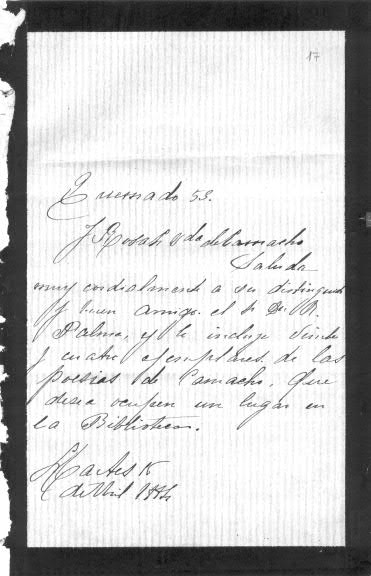 17
Quemado 53.
J. Rosas Vda de Camacho
Saluda
muy cordialmente a su distinguido
y buen amigo el Sr Dn R.
Palma, y le incluye veinte
y cuatro ejemplares de las
poesias de Camacho, que
desea ocupen un lugar en
la Biblioteca.
Martes
de Abril